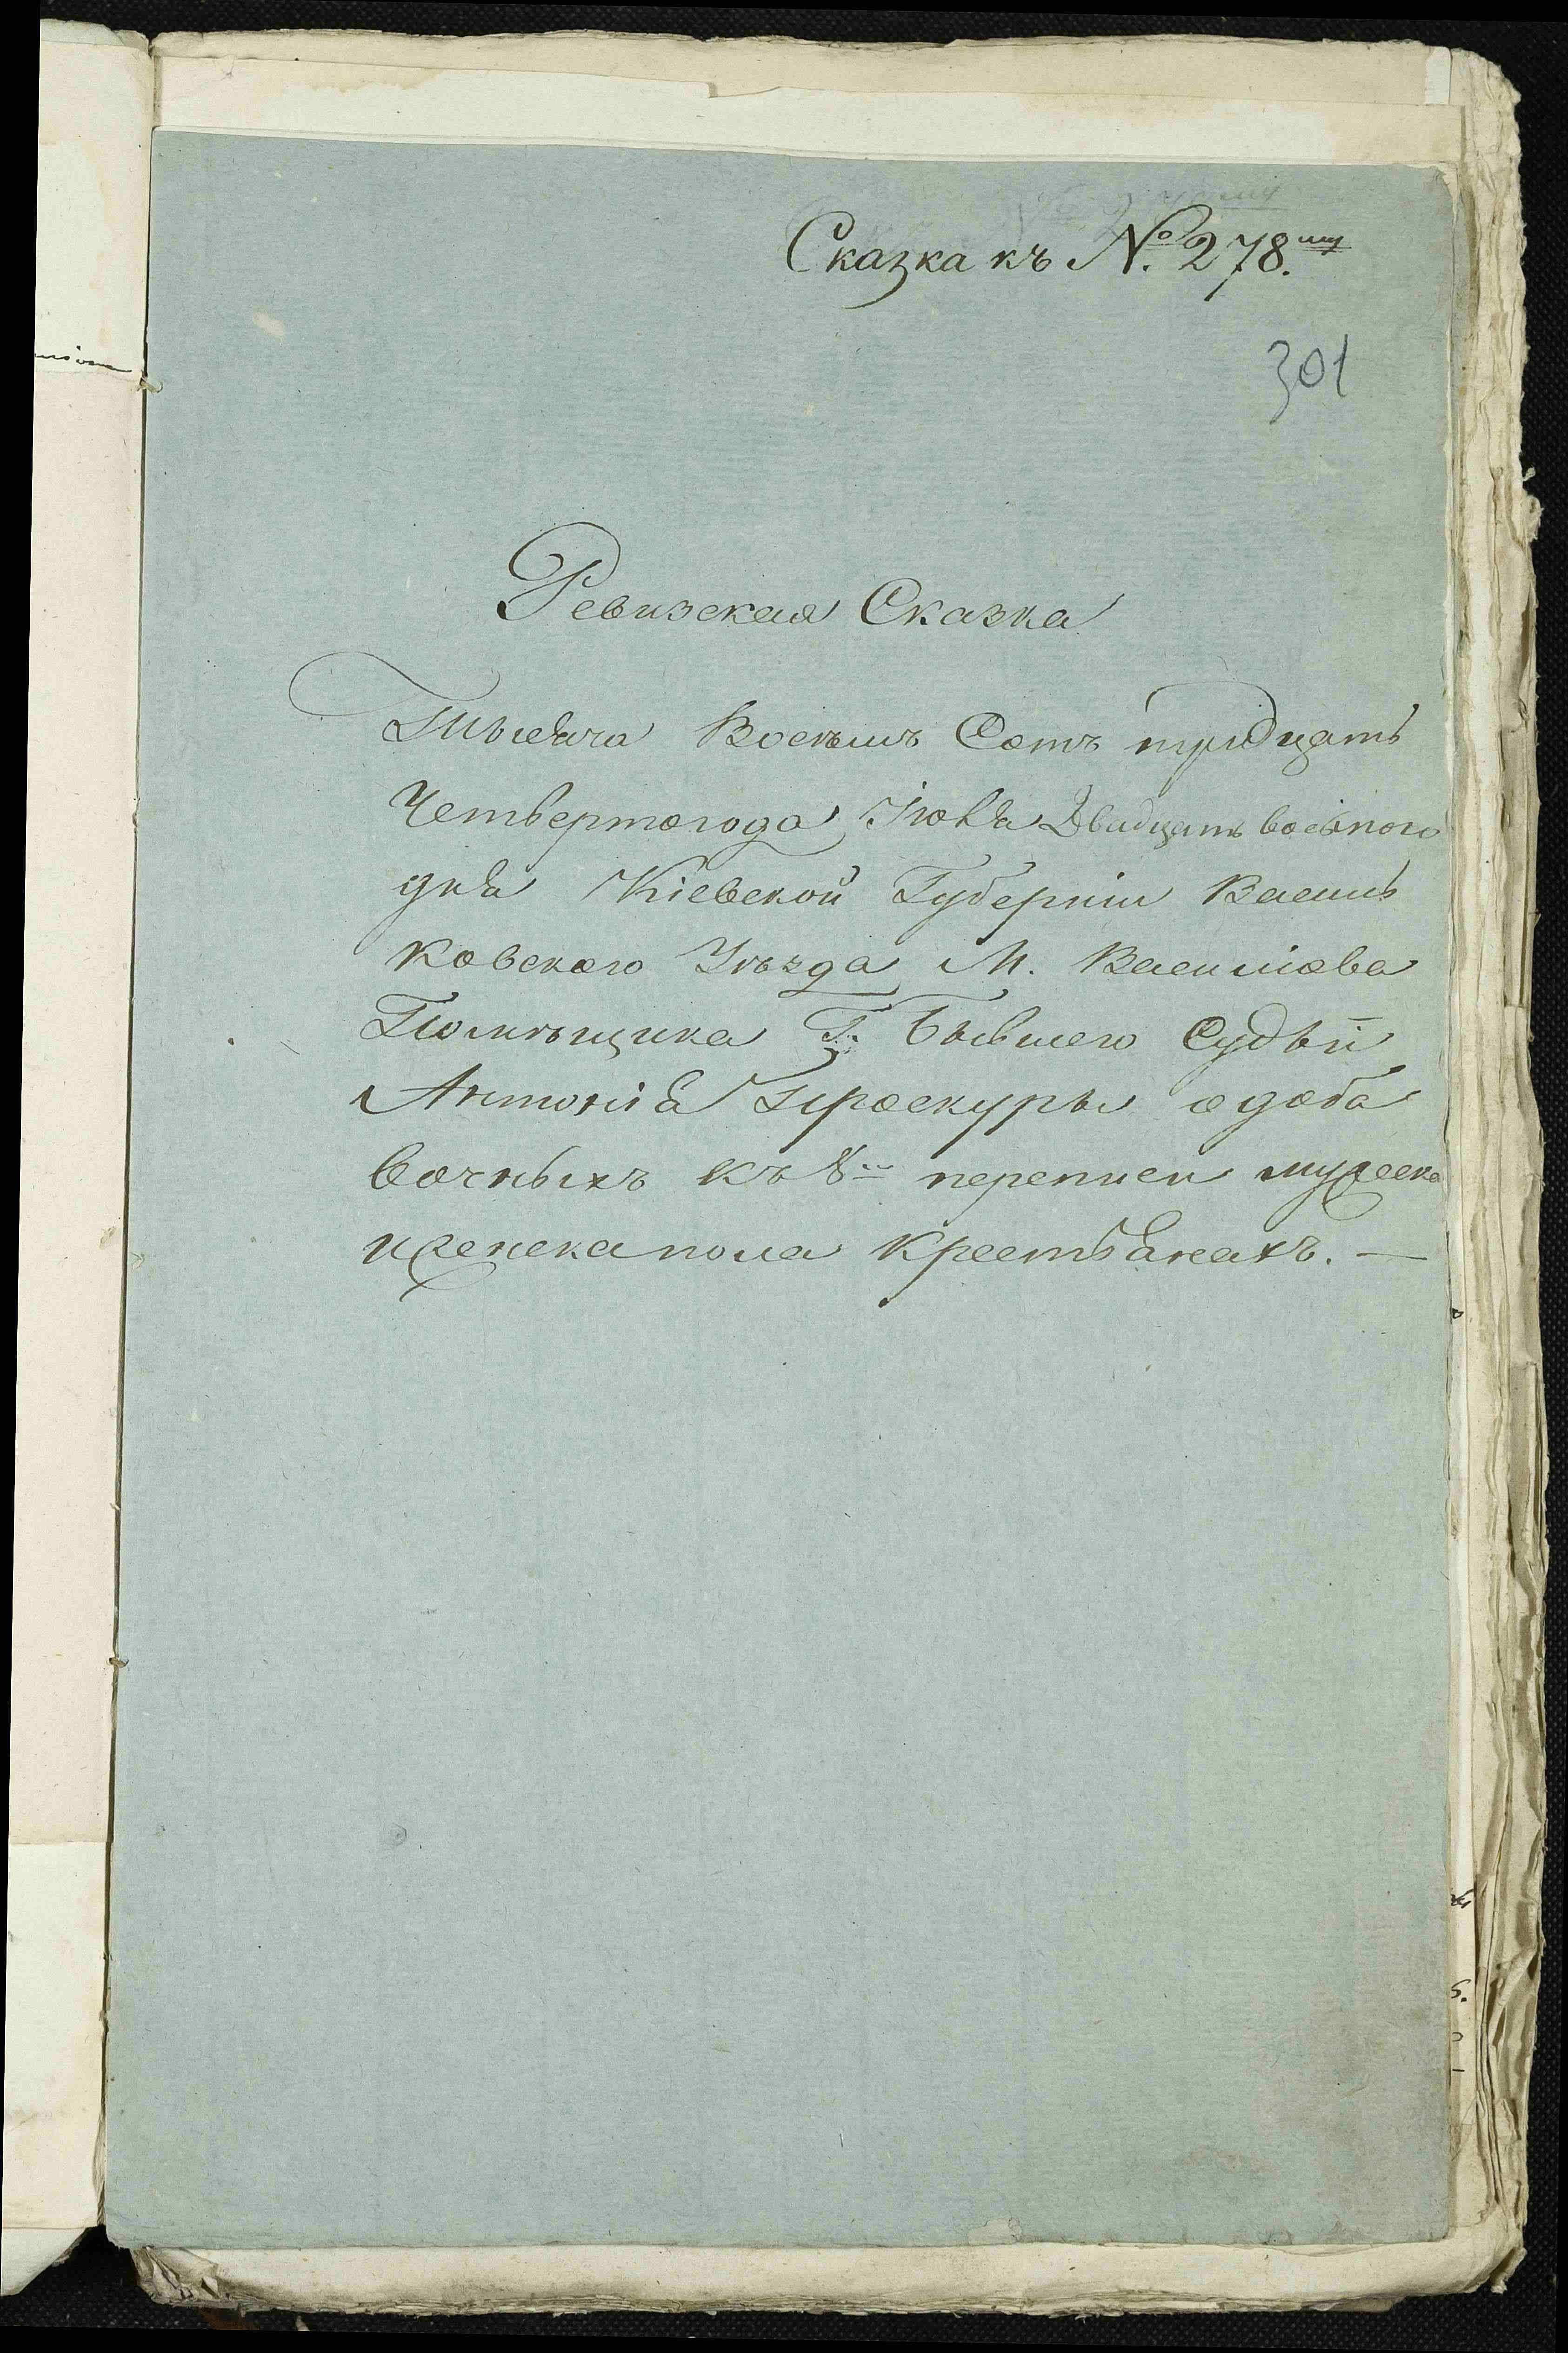 Сказка къ №. 278.му
301
Ревизская Сказка
Тысяча Восемъ Сотъ тридцать
Четвертогогода Іюня Двадцать восьмого
дня Кіевской Губерніи Василь
ковского Уѣзда М. Василіова
Помѣщика Г. Бывшего Судьи
Антонія Проскуры одоба
вочныхъ къ 8й переписи мужеска
иженска пола крестьянахъ. —